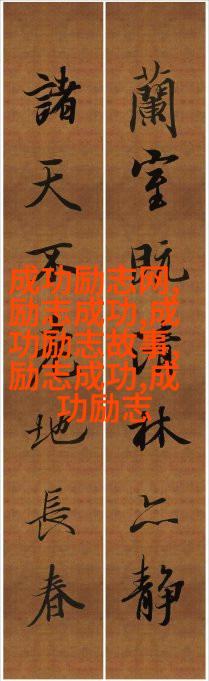 蘭室既林亦静
諸天不地長春
成功励志网,
励志成功,成
功励志故事,
励志成功,成
功励志